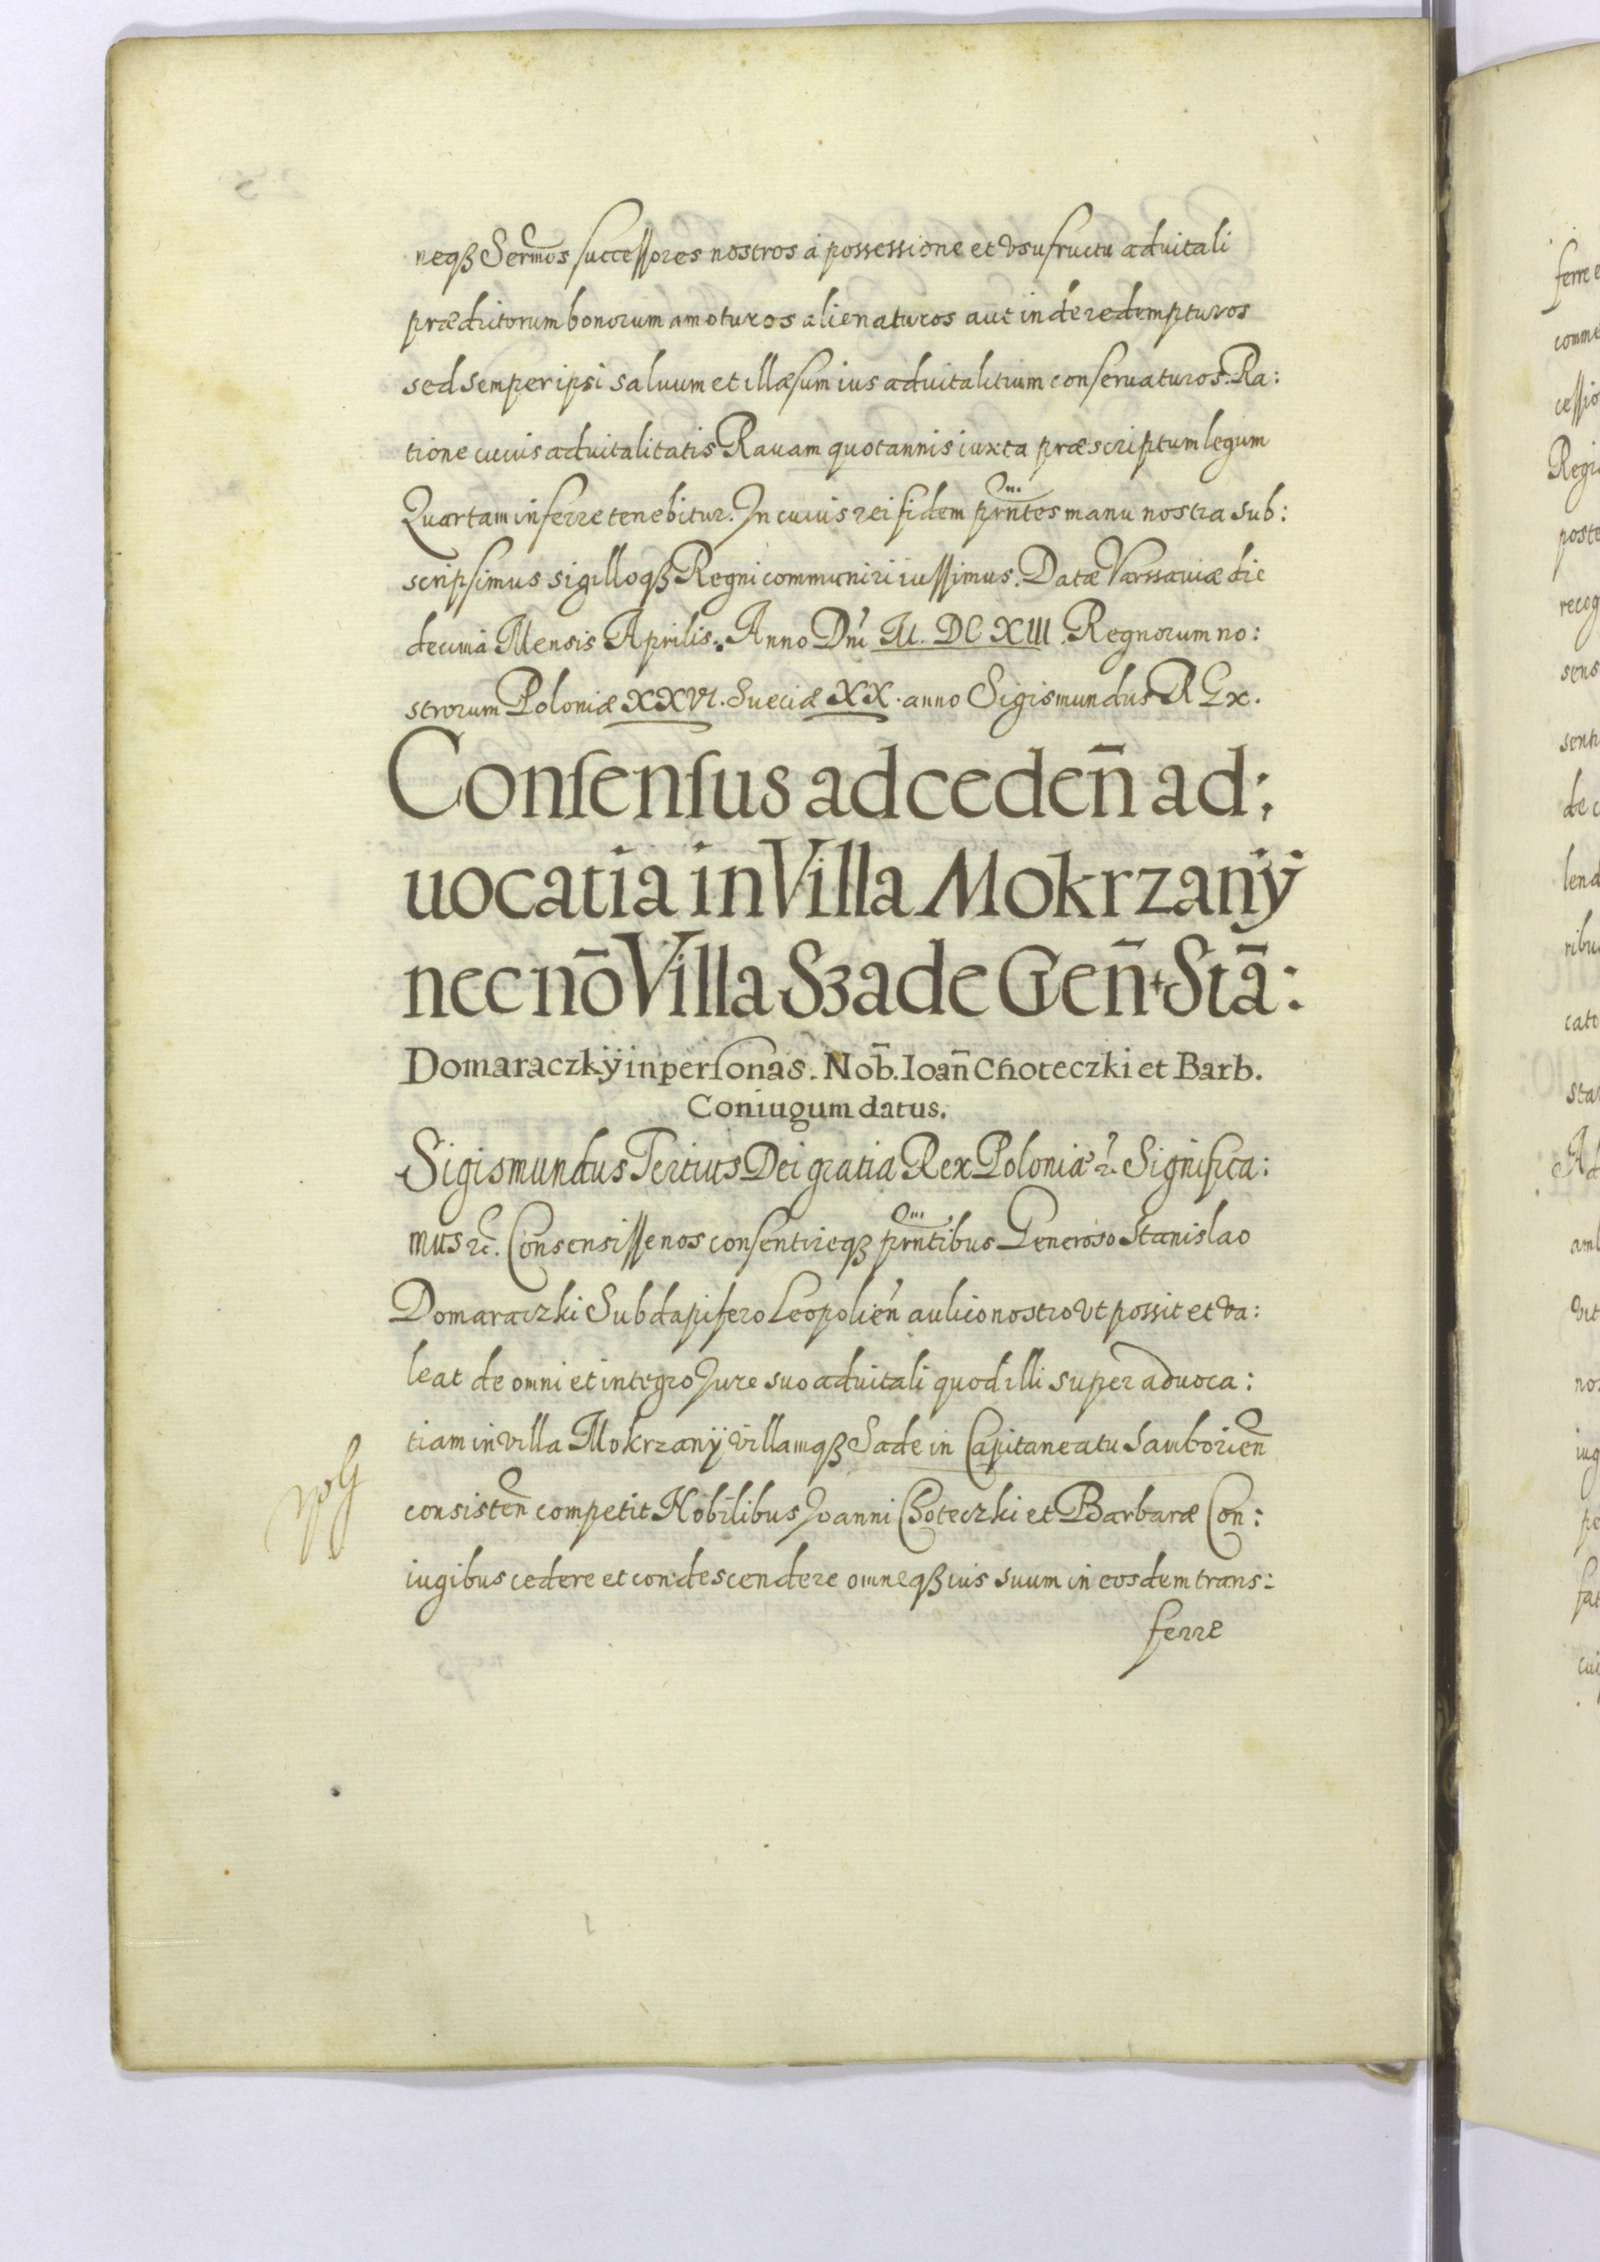 neqꝫ Sermos successores nostros à possessione et vsufructu aduitali
prædictorum bonorum amoturos alienaturos aut inde redempturos
sed semper ipsi saluum et illæsum ius aduitalitium conseruaturos. Ra:
tione cuius aduitalitatis Rauam quotannis iuxta præscriptum legum
Quartam inferre tenebitur. In cuius rei fidem prntes manu nostra sub:
scripsimus sigilloqꝫ Regni communiri iussimus. Datæ Varssauiæ die
decima Mensis Aprilis. Anno Dni M. DC XIII Regnorum no:
strorum Poloniæ XXVI. Sueciæ XX. anno Sigismundus REx.
Consensus ad ceden̄ ad:
uocatia in Villa Mokrzanÿ
nec nō Villa Szade Gen̄ Stā:
Domaraczkÿ in personas. Nob̄. Ioan̄ Choteczki et Barb.
Coniugum datus.
Sigismundus Tertius Dei gratia Rex Poloniæ ꝛc. Significa:
mus ꝛc. Consensisse nos consentireqꝫ prntibus Generoso Stanislao
Domaraczki Subdapifero Leopolien̄ aulico nostro vt possit et va:
leat de omni et integro Jure suo aduitali quod illi super aduoca:
tiam in villa Mokrzanÿ villamqꝫ Sade in Capitaneatu Samborien̄
consisten̄ competit Nobilibus Joanni Choteczki et Barbaræ Con:
iugibus cedere et condescendere omneqꝫ ius suum in eosdem trans:
ferre